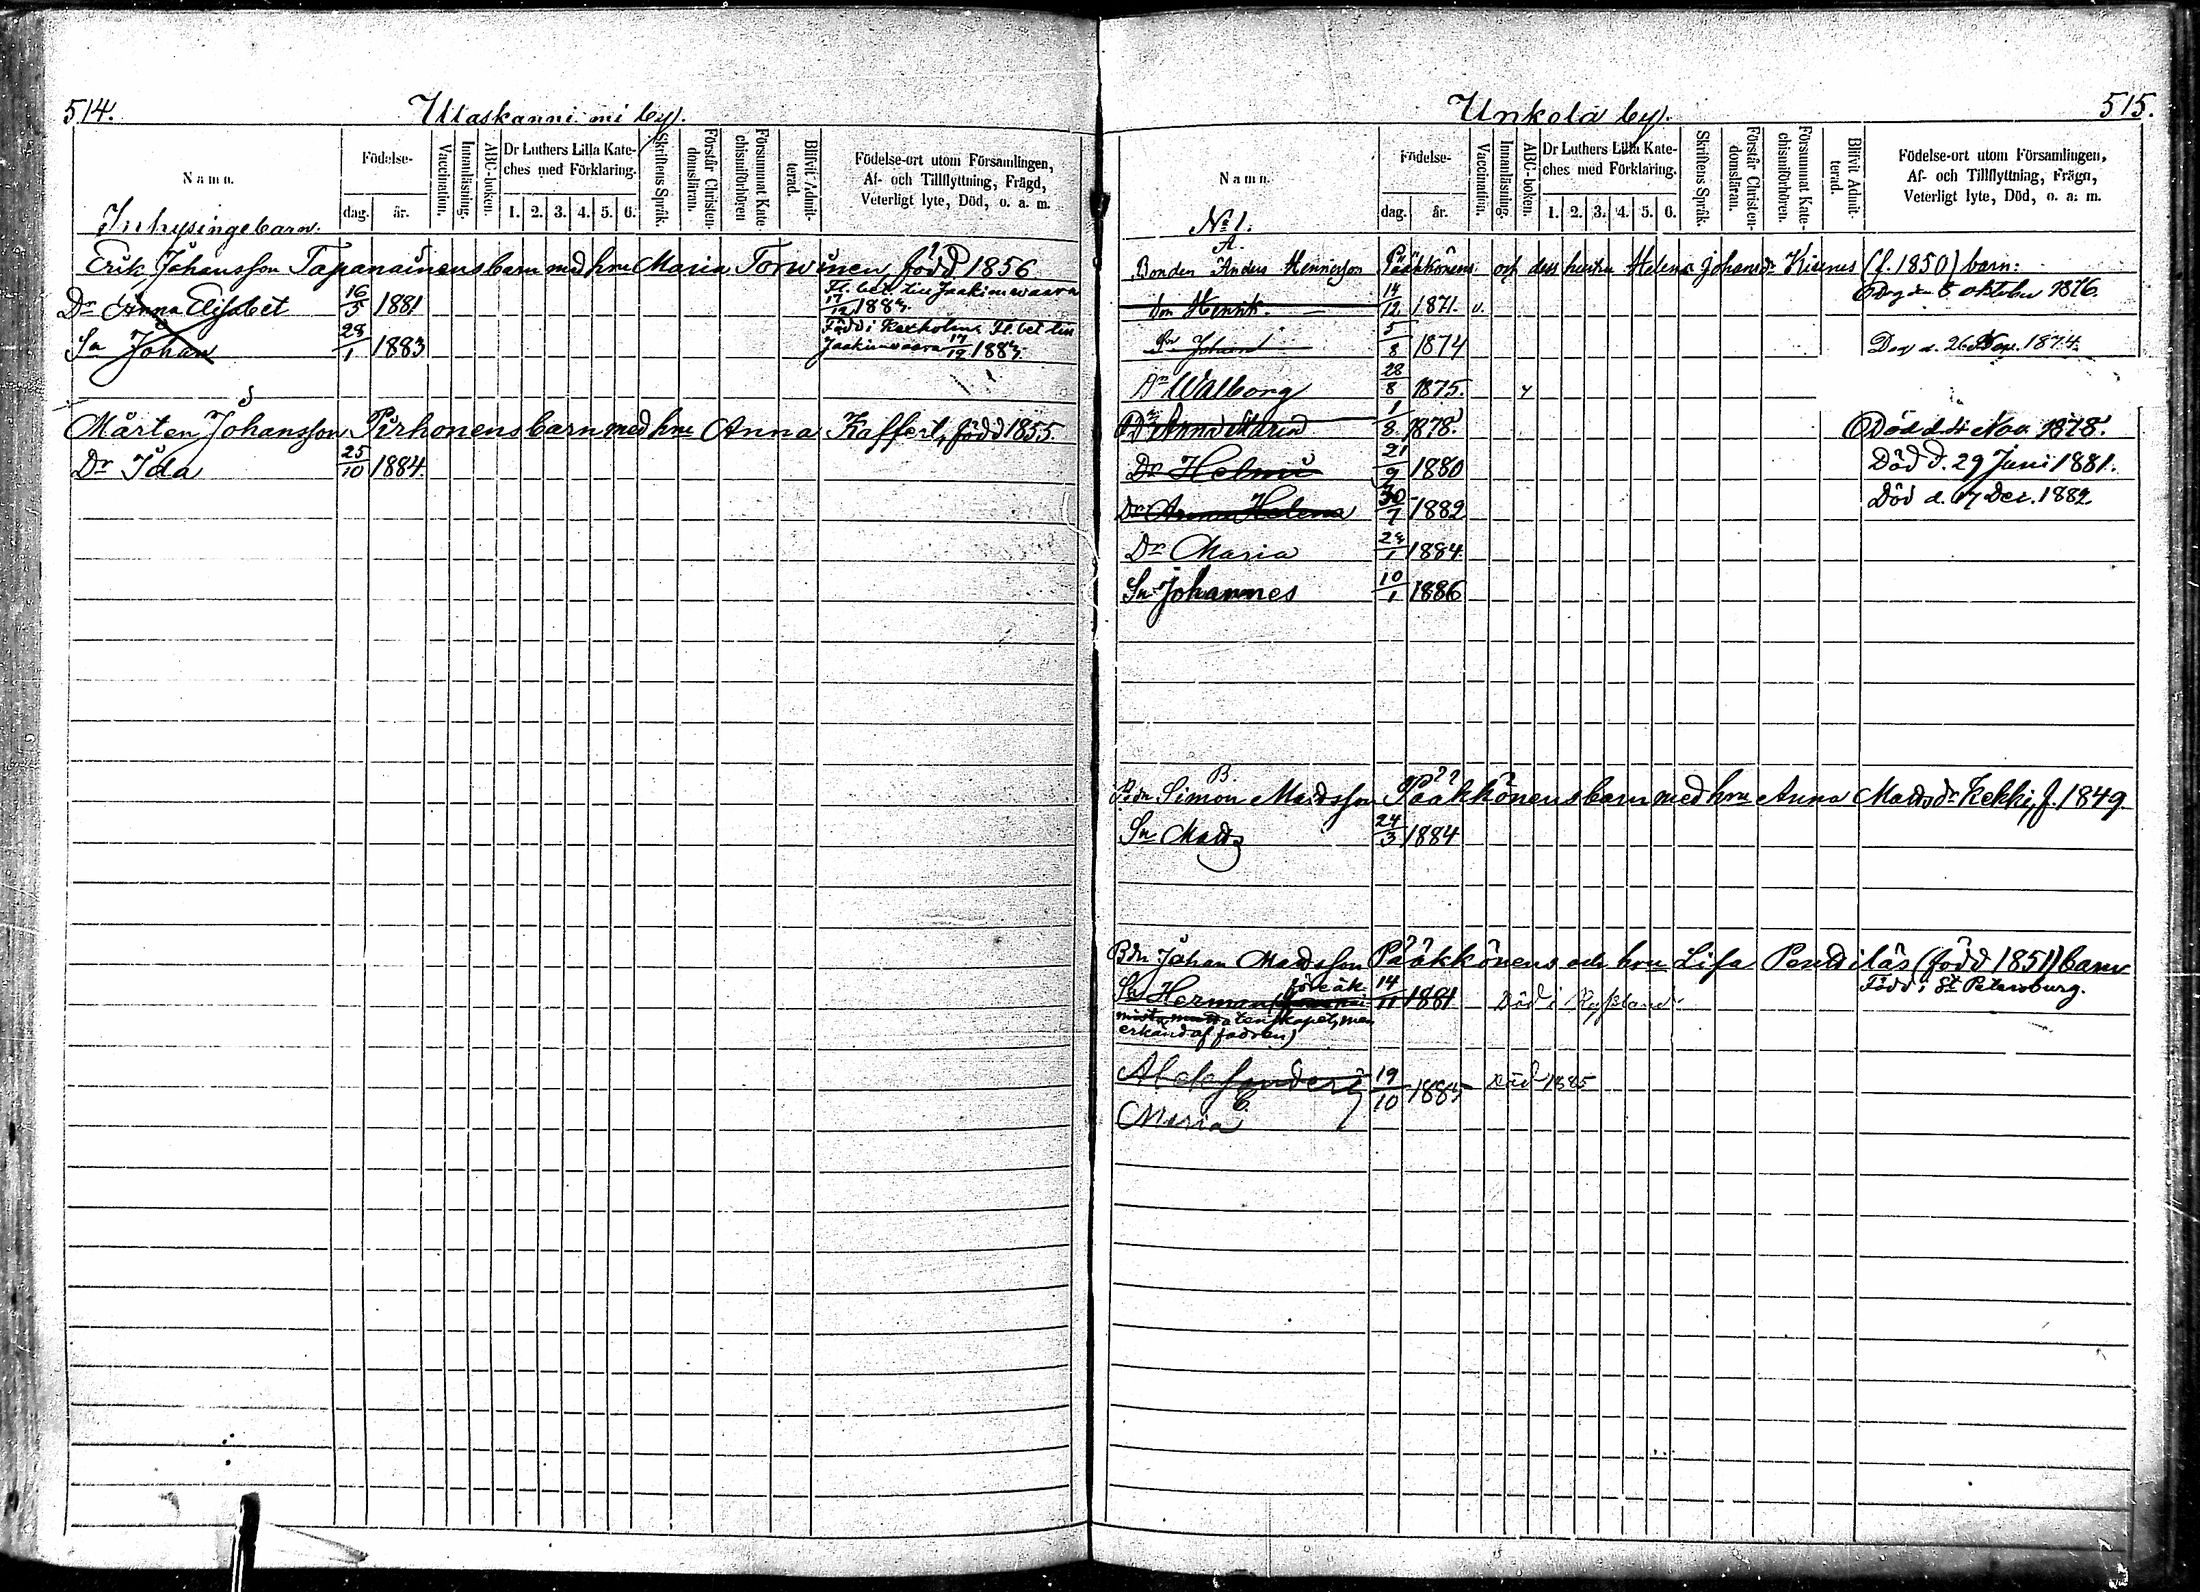 514.
Utaskanni mi by.
Namn.
Födelse-
dag.
år.
Vaccination.
Innanläsning.
ABC-boken.
Dr Luthers Lilla Kate-
ches med Förklaring.
1. 2. 3. 4. 5. 6.
Skriftens Språk.
Förstår Christen-
domsläran.
Försummat Kate-
chismiförhören
Blifvit Admit-
terad.
Födelse-ort utom Församlingen,
Af- och Tillflyttning, Frägd,
Veterligt lyte, Död, o. a. m.
Inhysingebarn.
Erik Johansson Tapanainens barn med hru Maria Torwinen, född 1856
Dr Anna Elisabet 16/5 1881 Fl. bet till Jaakimwaara
17/12 1887.
Sn Johan 28/1 1883 Född i Kexholm. Fl. bet till
Jaakimwaara 17/12 1887.
Mårten Johansson Pirhonens barn med hru Anna Kaffert, född 1855.
Dr Ida 25/10 1884.
515.
Unkola by.
Namn.
Födelse-
dag.
år.
Vaccination.
Innanläsning.
ABC-boken.
Dr Luthers Lilla Kate-
ches med Förklaring.
1. 2. 3. 4. 5. 6.
Skriftens Språk.
Förstår Christen-
domsläran.
Försummat Kate-
chismiförhören.
Blifvit Admit-
terad.
Födelse-ort utom Församlingen,
Af- och Tillflyttning, Frägn,
Veterligt lyte, Död, o. a. m.
No 1.
A.
Bonden Anders Henricsson Pääkkönens och dess hustru Helena Johansdr Kisenes (f. 1850) barn:
Son Henrik. 14/12 1871. v. Dog den 8 oktober 1876.
Son Johan 5/8 1874 Dog d. 26 Nov. 1874.
Dr Walborg 28/8 1875.
Dr Anna Maria 1/8 1878. Död d. Nov 1878.
Dr Helmi 21/9 1880 Död d. 29 Juni 1881.
Dr Anna Helena 30/7 1882 Död d. 17 Dec. 1882
Dr Maria 1884.
Sn Johannes 10/1 1886
B.
Bdn Simon Madsson Pääkkönens barn med hru Anna Mattsdr Kekki, f. 1849.
Sn Matts 24/3 1884
Bdn Johan Madsson Pääkkönens och hru Lisa Penditäs (född 1851) barn
Sn Herman (före äk- 14/11 1881 Död i Ryssland. Född i St Petersburg.
tenskapet, men
erkänd af fadren)
Aleksanderi 19/10 1885 Död 1885
Maria